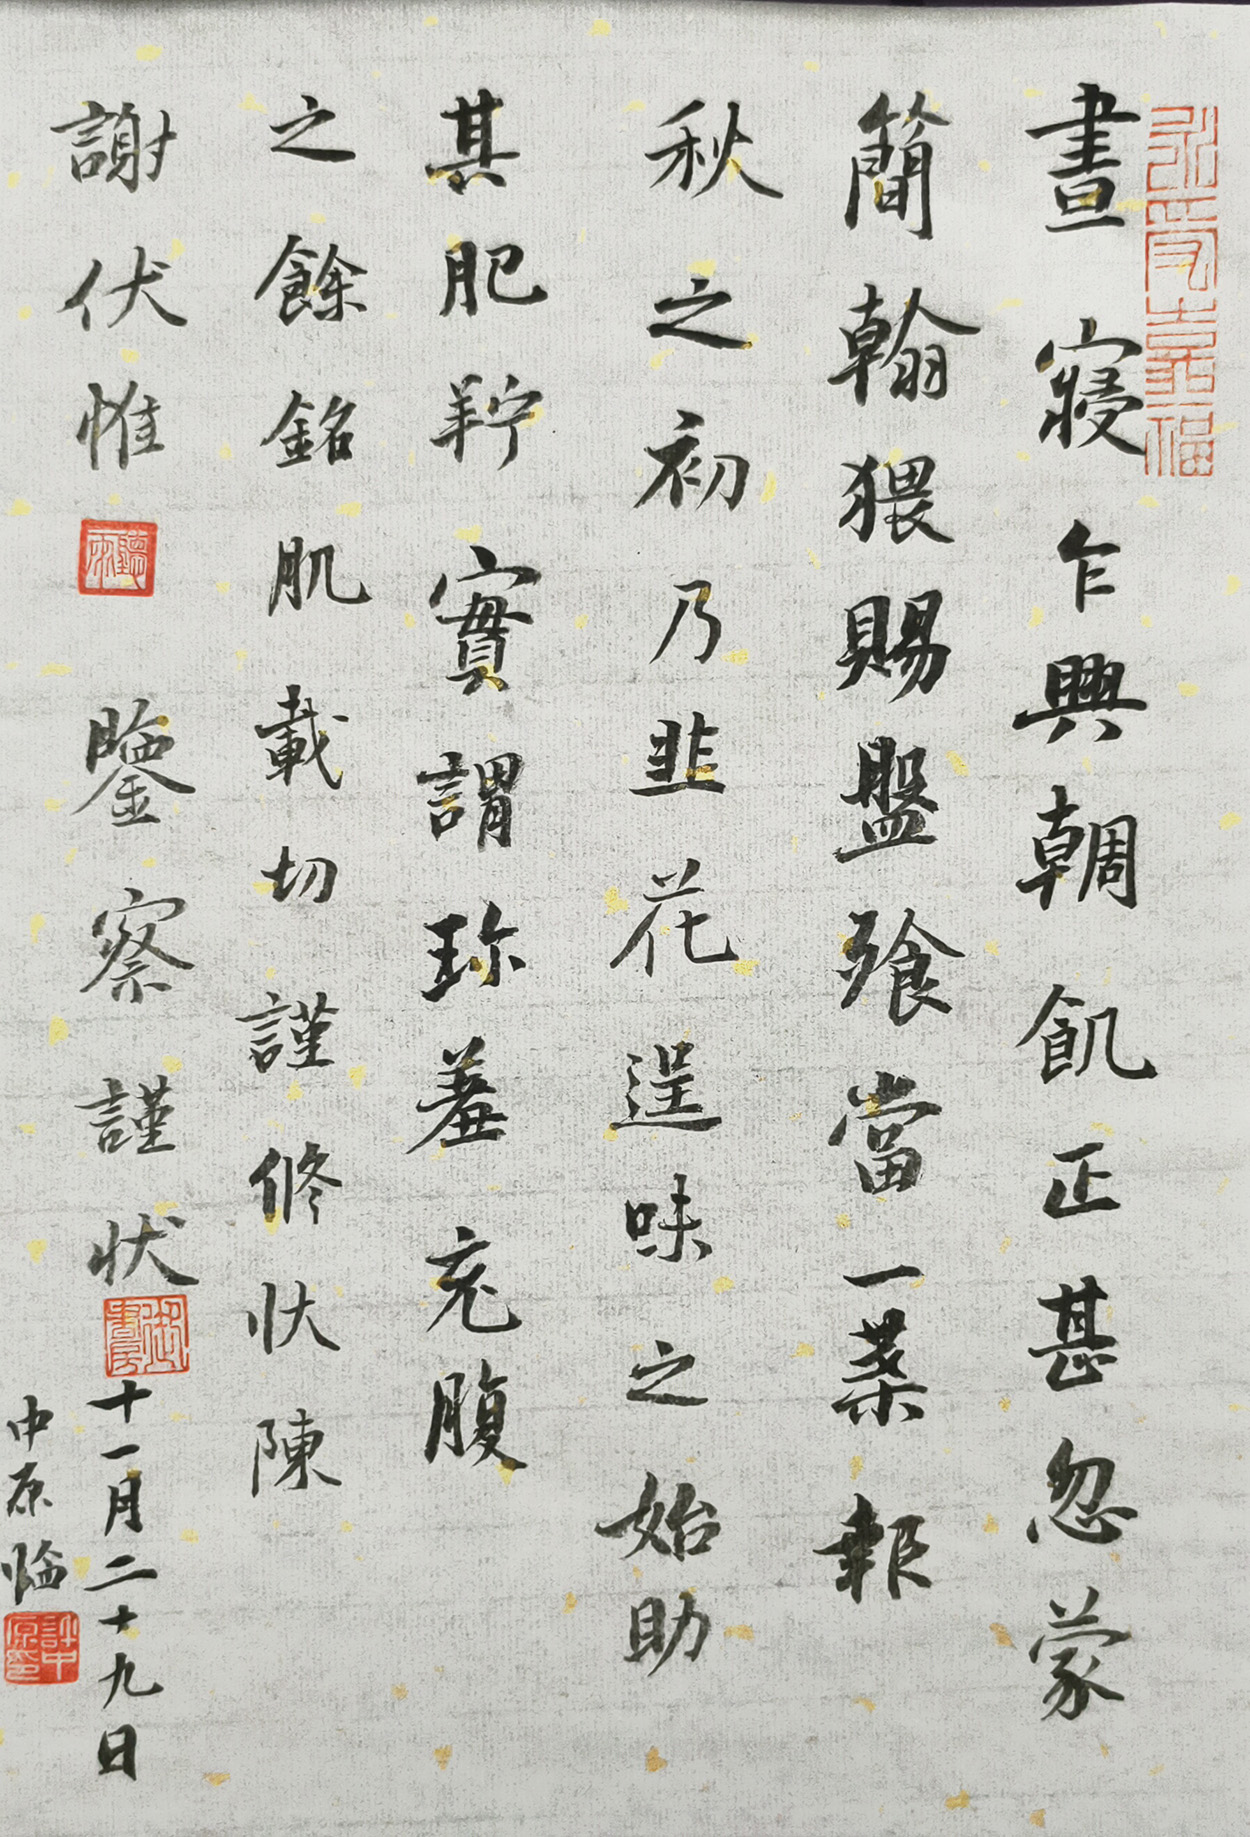 永受嘉福
晝寢乍興輖飢正甚忽蒙
簡翰猥賜盤飧當一葉報
秋之初乃韭花逞味之始助
其肥羜實謂珎羞充腹
之餘銘肌載切謹修狀陳
謝伏惟
聽雨
鑒察謹狀
御書房
十一月二十九日
中原臨
許中原印